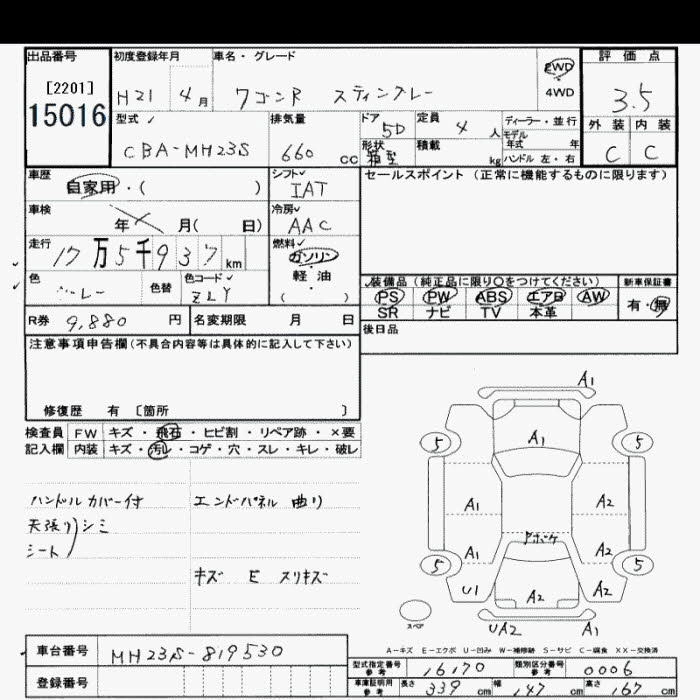 出品番号 初度登録年月 車名・グレード 評価点
[2201] H21 4月 ワゴンR スティングレー 2WD 4WD 3.5
15016 型式 排気量 ドア 5D 定員 4人 ディーラー・並行 外装 内装
CBA-MH23S 660 cc 形状 箱型 積載 kg モデル年式 年 ハンドル 左・右 C C
車歴 自家用・( ) シフト IAT セールスポイント (正常に機能するものに限ります)
車検 年 月( 日) 冷房 AAC
走行 17万5千937km 燃料 ガソリン・軽油 ( )
色 色替 色コード ZLY 装備品 (純正品に限り○をつけてください) 新車保証書
PS PW ABS エアB AW 有・無
SR ナビ TV 本革
R券 9,880円 名変期限 月 日 後日品
注意事項申告欄(不具合内容等は具体的に記入して下さい)
修復歴 有 〔箇所 〕
検査員 FW キズ・飛石・ヒビ割・リペア跡・×要
記入欄 内装 キズ・汚レ・コゲ・穴・スレ・キレ・破レ
ハンドルカバー付 エンドパネル 曲り
天張り シミ
シート
キズ E スリキズ
A1
5 A1 5
A1 A2
アポケ
A1 A2
5 5
U1 A2 A2
スペア UA2 A1
A-キズ E-エクボ U-凹み W-補修跡 S-サビ C-腐食 XX-交換済
車台番号 MH23S-819530 型式指定番号 参考 16170 類別区分番号 参考 0006
登録番号 車庫証明用 参考 長さ 339cm 幅 147cm 高さ 167cm